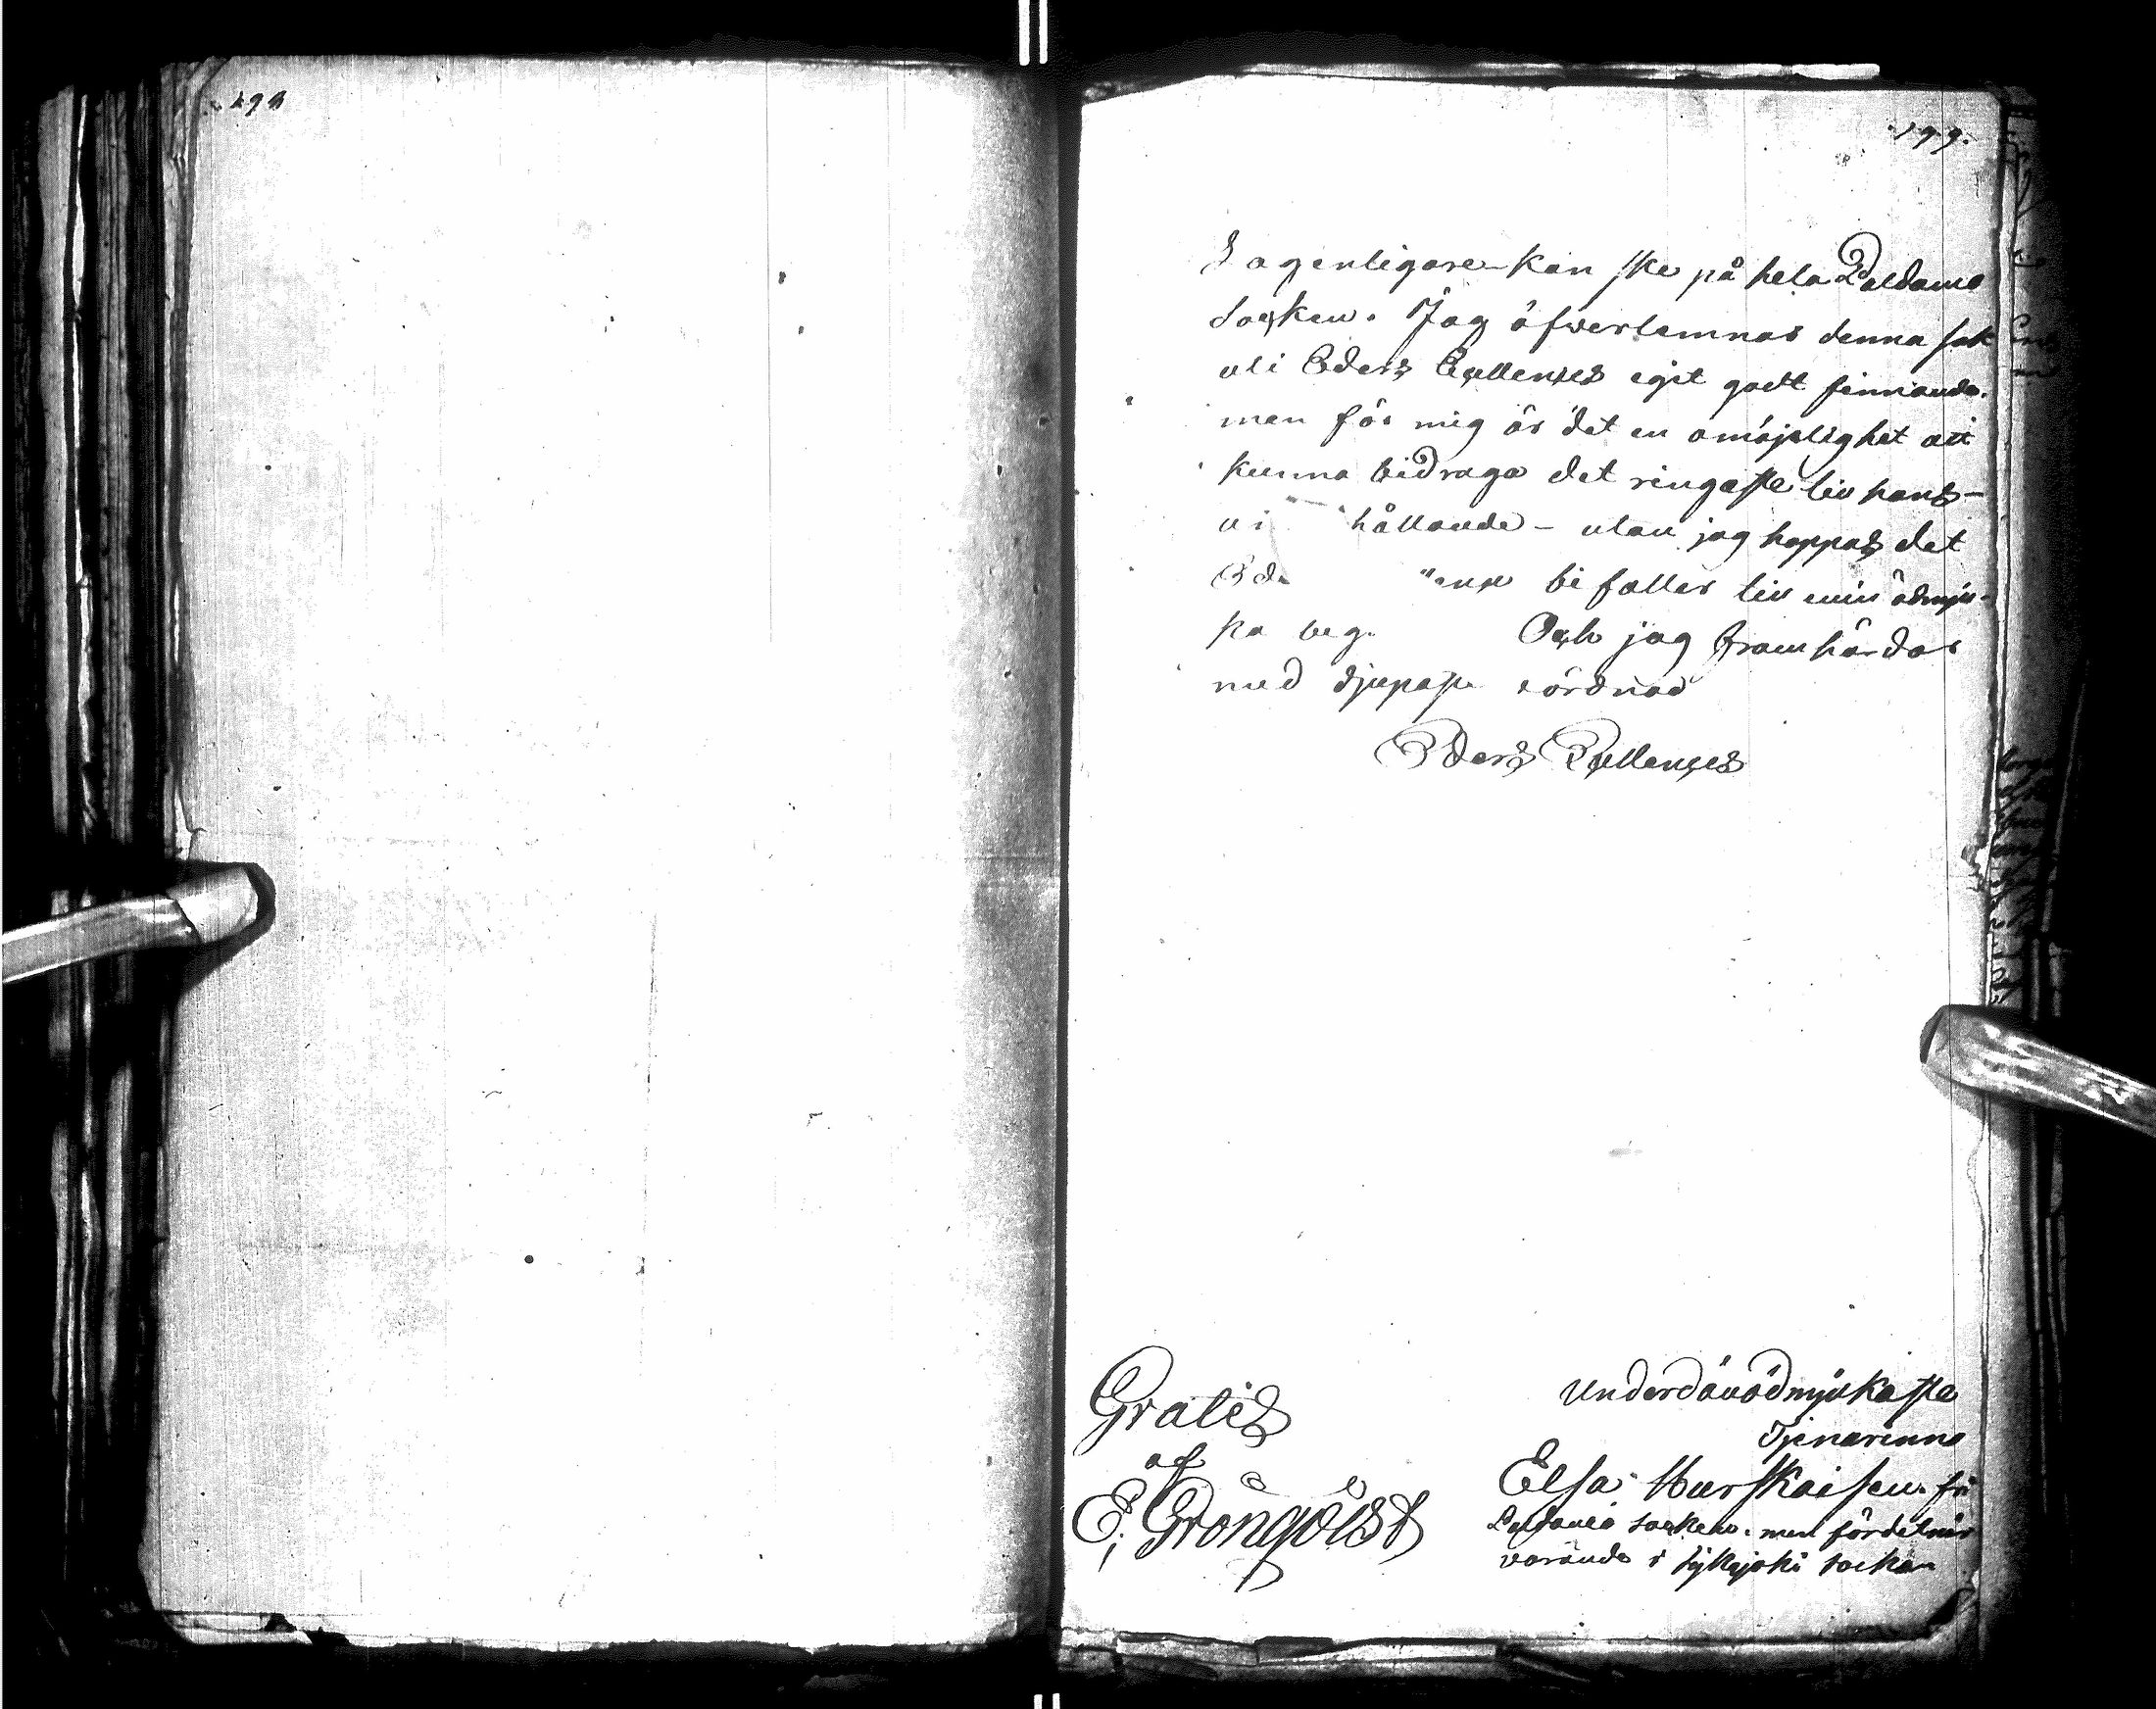 199.
Lagenligare kan ske på hela Paldamo
Socken. Jag öfverlemnar denna sak
uti Eders Exellenses eget godt finnande.
men för mig är det en omöjelighet att
kunna bidraga det ringaste till hans
hållande – utan jag hoppas det
bifaller till min ödmju-
ka beg. Och jag framhärdar
med djupaste vördnad
Eders Exellenses
Underdånödmjukaste
Tjenarinna
Gratis
af
E. Grönqvist
Elsa Hurskaisen fr:
Paldamo socken. men fördetmer
varande i Sykejoki socken